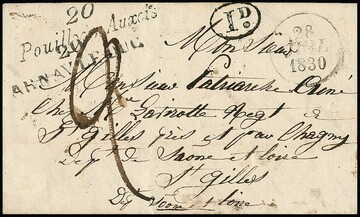 20
Pouilly-en-Auxois
20
ARNAY-LE-DUC
1D
28
1830
Monsieur
Monsieur Patriarche ainé
Chez Mr
St Gilles près et par Chagny
Dept de Saone et loire
St Gilles
Dept Saone et loire